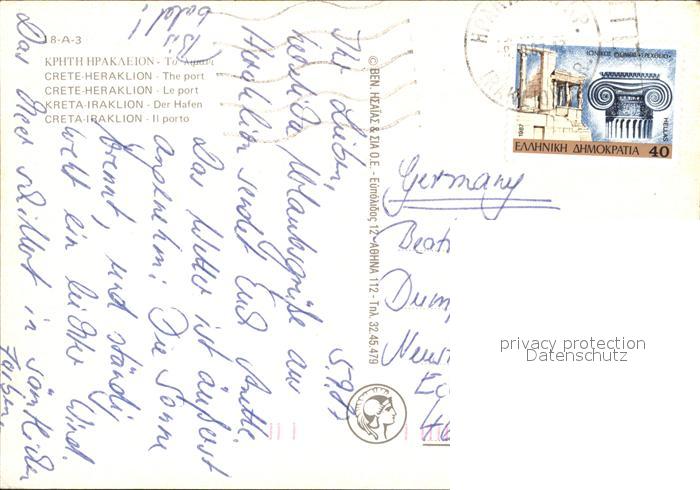 18-A-3
ΚΡΗΤΗ ΗΡΑΚΛΕΙΟΝ - Το λιμάνι
CRETE-HERAKLION - The port
CRETE-HERAKLION - Le port
KRETA-IRAKLION - Der Hafen
CRETA-IRAKLION - Il porto
5.9.87
Ihr Lieben,
herzliche Urlaubsgrüße aus
Heraklion sendet Euch Anette.
Das Wetter ist äußerst
angenehm: Die Sonne
brennt, und ständig
weht ein leichter Wind.
Das Meer schillert in sämtlichen
Farben.
Bis
bald!
© ΒΕΝ. ΗΣΑΪΑΣ & ΣΙΑ Ο.Ε. - Ευπόλιδος 12 - ΑΘΗΝΑ 112 - Τηλ. 32.45.479
ΙΩΝΙΚΟΣ ΡΥΘΜΟΣ «ΕΡΕΧΘΕΙΟ»
HELLAS
1987
ΕΛΛΗΝΙΚΗ ΔΗΜΟΚΡΑΤΙΑ 40
Germany
Beat
Dum
Neus
privacy protection
Datenschutz